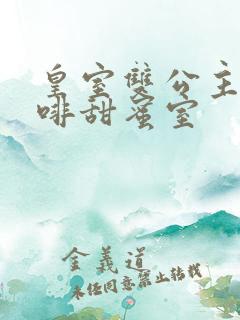 皇室雙公主
啡甜蜜室
金義道
未经同意禁止转载